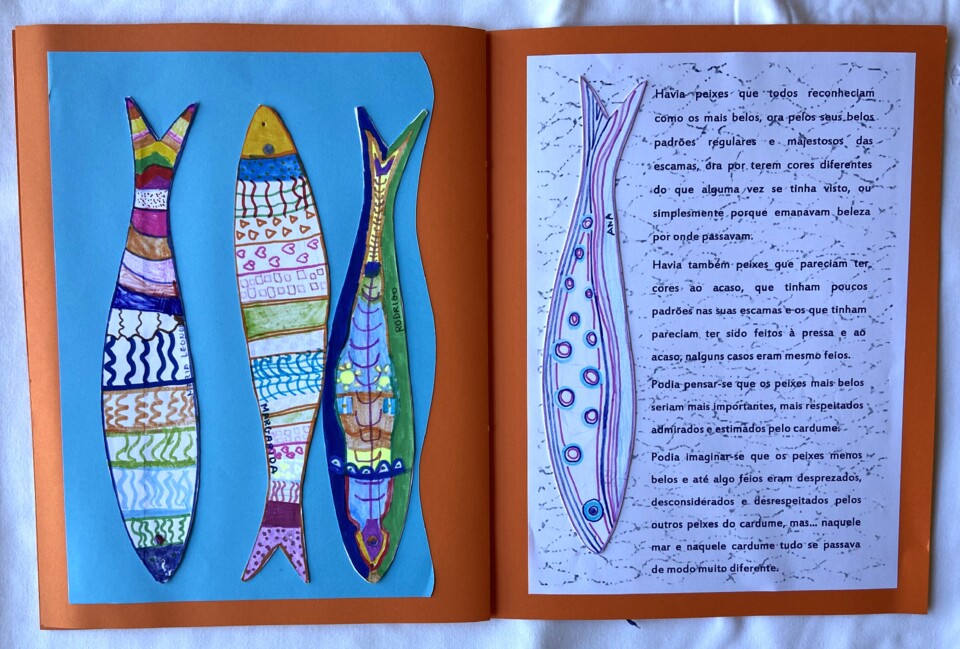 MARIA LEONOR
MARGARIDA
RODRIGO
ANA
Havia peixes que todos reconheciam
como os mais belos, ora pelos seus belos
padrões regulares e majestosos das
escamas, ora por terem cores diferentes
do que alguma vez se tinha visto, ou
simplesmente porque emanavam beleza
por onde passavam.
Havia também peixes que pareciam ter
cores ao acaso, que tinham poucos
padrões nas suas escamas e os que tinham
pareciam ter sido feitos à pressa e ao
acaso, nalguns casos eram mesmo feios.
Podia pensar-se que os peixes mais belos
seriam mais importantes, mais respeitados
admirados e estimados pelo cardume.
Podia imaginar-se que os peixes menos
belos e até algo feios eram desprezados,
desconsiderados e desrespeitados pelos
outros peixes do cardume, mas... naquele
mar e naquele cardume tudo se passava
de modo muito diferente.